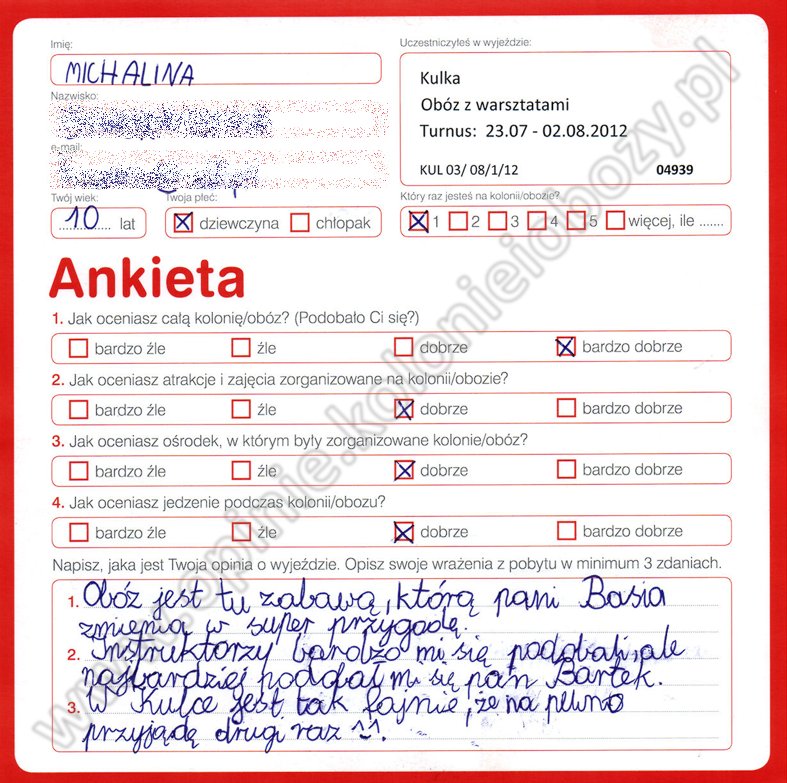 Imię:
MICHALINA
Nazwisko:
e-mail:
Twój wiek:
10 lat
Twoja płeć:
dziewczyna chłopak
Uczestniczyłeś w wyjeździe:
Kulka
Obóz z warsztatami
Turnus: 23.07 - 02.08.2012
KUL 03/ 08/1/12 04939
Który raz jesteś na kolonii/obozie?
1 2 3 4 5 więcej, ile .......
Ankieta
1. Jak oceniasz całą kolonię/obóz? (Podobało Ci się?)
bardzo źle źle dobrze bardzo dobrze
2. Jak oceniasz atrakcje i zajęcia zorganizowane na kolonii/obozie?
bardzo źle źle dobrze bardzo dobrze
3. Jak oceniasz ośrodek, w którym były zorganizowane kolonie/obóz?
bardzo źle źle dobrze bardzo dobrze
4. Jak oceniasz jedzenie podczas kolonii/obozu?
bardzo źle źle dobrze bardzo dobrze
Napisz, jaka jest Twoja opinia o wyjeździe. Opisz swoje wrażenia z pobytu w minimum 3 zdaniach.
1. Obóz jest tu zabawą, którą pani Basia
zmienia w super przygodę.
2. Instruktorzy bardzo mi się podobali, ale
najbardziej podobał mi się pan Bartek.
3. W Kulce jest tak fajnie, że na pewno
przyjadę drugi raz
www.opinie.kolonieiobozy.pl